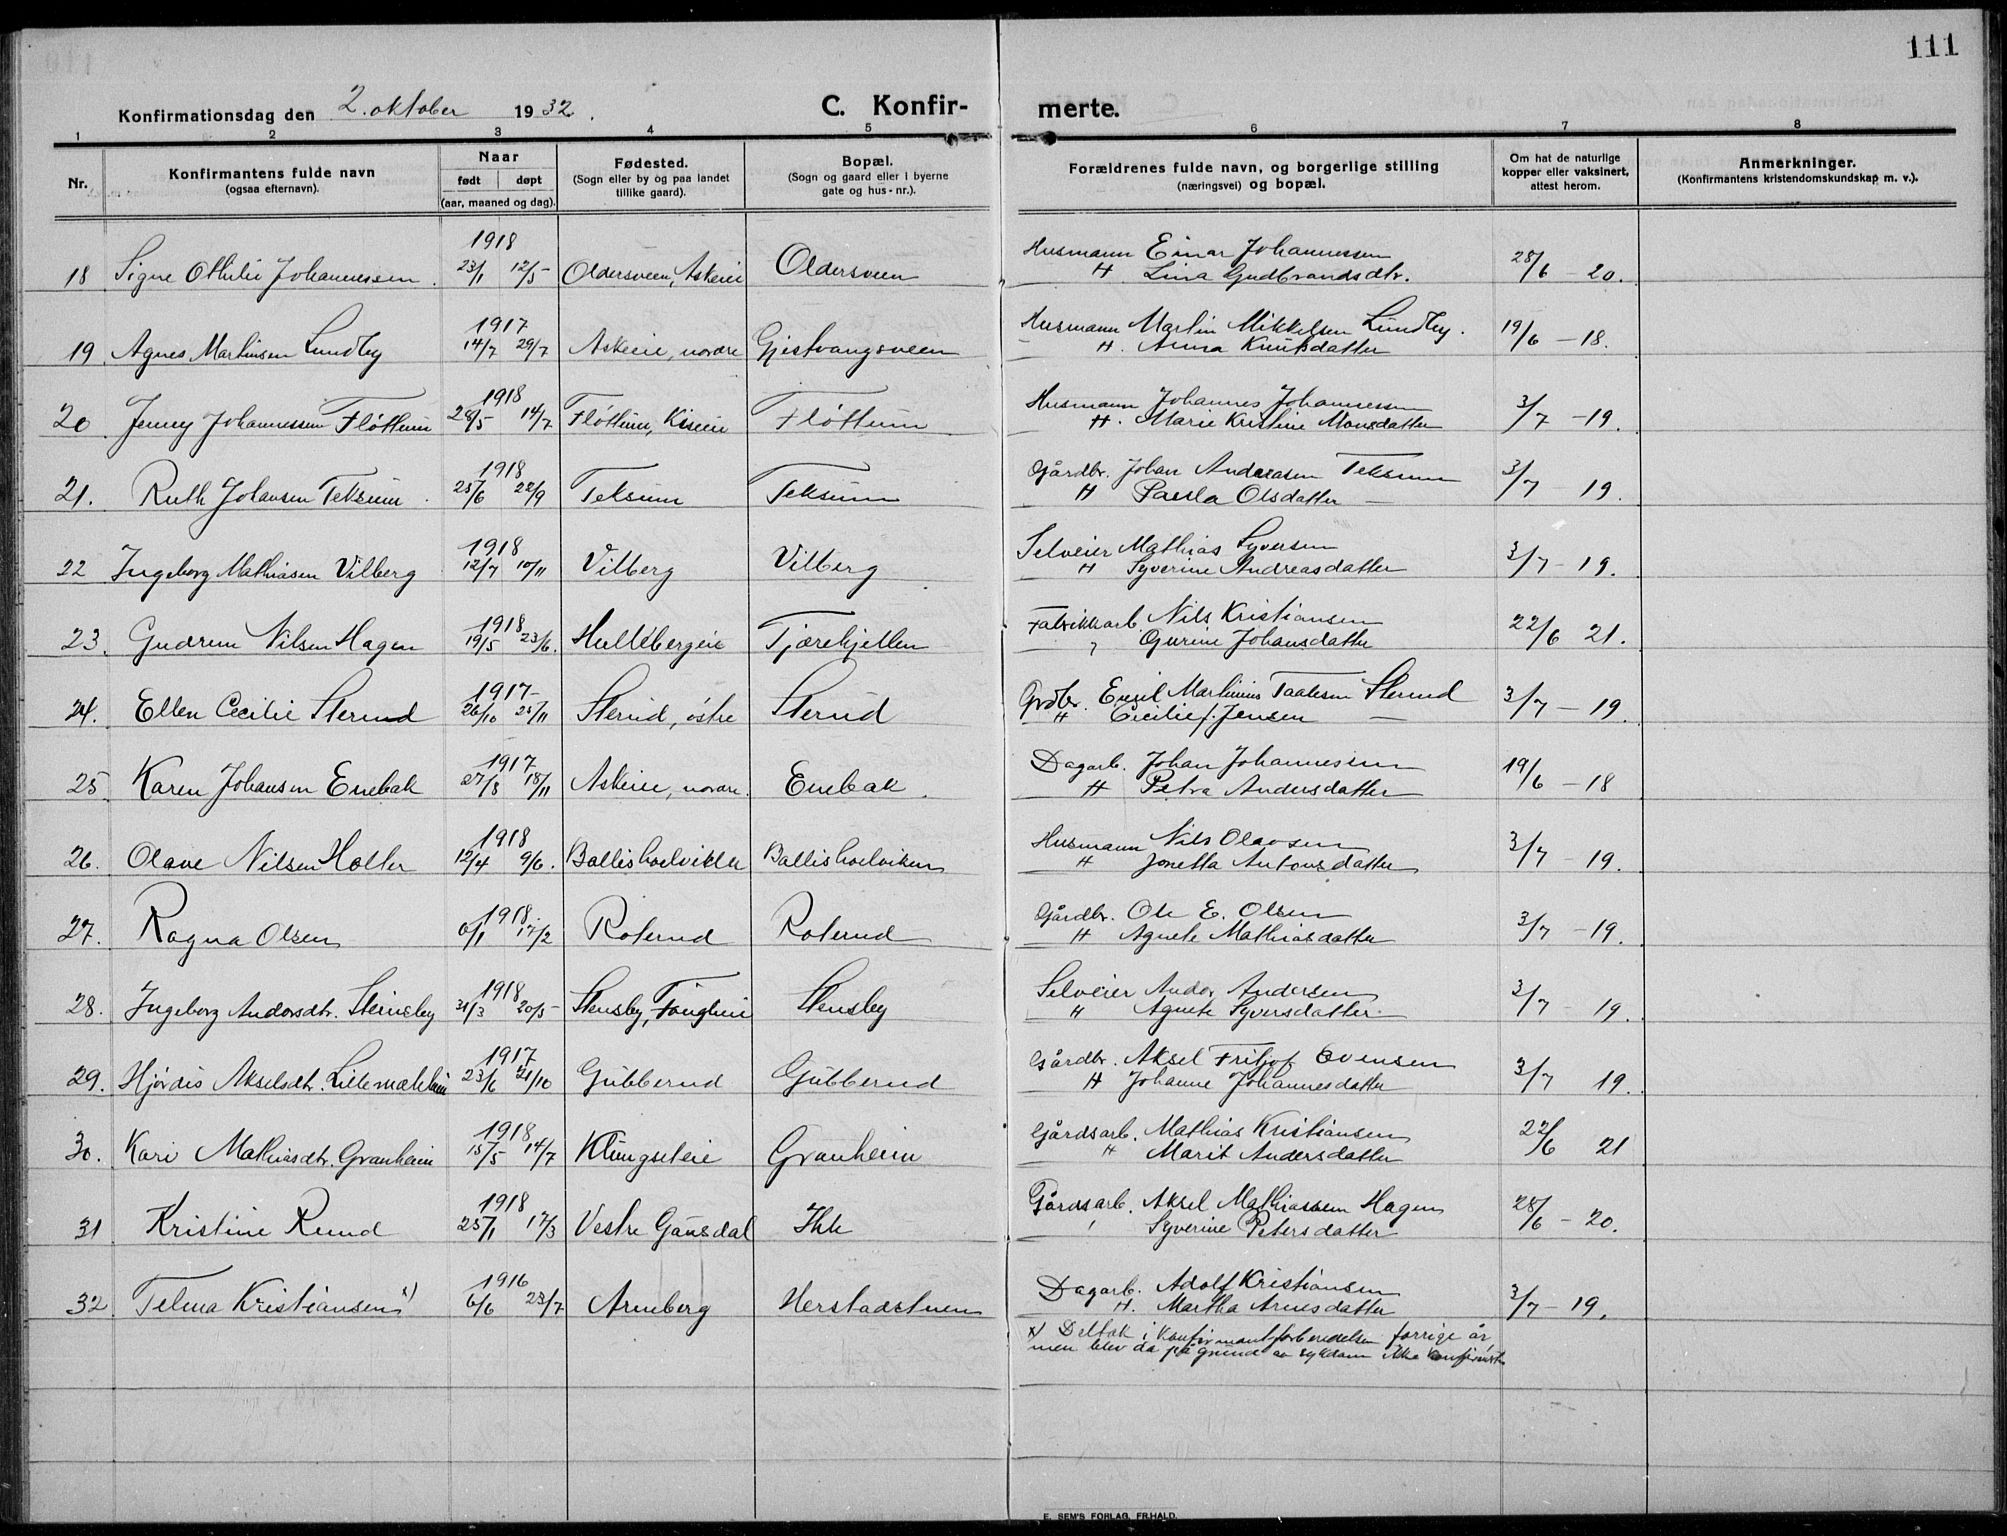 111
Konfirmationsdag den 2. oktober 1932.
C. Konfir-
merte.
1 2 3 4 5 6 7 8
Nr.
Konfirmantens fulde navn
(ogsaa efternavn).
Naar
født døpt
(aar, maaned og dag).
Fødested.
(Sogn eller by og paa landet
tillike gaard).
Bopæl.
(Sogn og gaard eller i byerne
gate og hus-nr.).
Forældrenes fulde navn, og borgerlige stilling
(næringsvei) og bopæl.
Om hat de naturlige
kopper eller vaksinert,
attest herom.
Anmerkninger.
(Konfirmantens kristendomskundskap m. v.).
1918 Husmann Einar Johannessen
18 Signe Othilie Johannessen. 23/1 12/5 Oldersveen, Askeie Oldersveen H. Lina Gudbrandsdtr. 28/6 - 20.
1917 Husmann Martin Mikkelsen Lundby.
19 Agnes Martinsen Lundby 14/7 29/7 Askeie, nordre Gjestvangsveen H. Anna Knutsdatter 19/6 - 18.
1918 Husmann Johannes Johannessen
20 Jenny Johannessen Fløttum 28/5 14/7 Fløttum, Kiseie Fløttum H. Marie Kristine Monsdatter 3/7 - 19.
1918 Gårdbr. Johan Andersen Teksum
21. Ruth Johansen Teksum. 25/6 22/9 Teksum Teksum H Paula Olsdatter — 3/7 - 19.
1918 Selveier Mathias Syversen
22 Ingeborg Mathiasen Vilberg 12/7 10/11 Vilberg Vilberg H Syverine Andreasdatter 3/7 - 19.
1918 Fabrikkarb Nils Kristiansen
23. Gudrun Nilsen Hagen 19/5 23/6. Hullebergeie Tjærekjellen Gurine Johansdatter 22/6 21.
1917 Grdbr. Emil Martinius Taalesen Sterud
24. Ellen Cecilie Sterud 26/10 25/11 Sterud, østre Sterud H Cecilie f. Jensen — 3/7 - 19.
1917 Dagarb. Johan Johannessen
25 Karen Johansen Enebak 27/8 18/11 Askeie, nordre. Enebak. H Petra Andersdatter 19/6 - 18
1918 Husmann Nils Olavsen
26. Olave Nilsen Holter 12/4 9/6. Ballishoelvikla Ballishoelviken H Jonetta Antonsdatter 3/7 - 19.
1918. Gårdbr. Ole E. Olsen
27. Ragna Olsen 6/1 17/2 Roterud Roterud H Agnete Mathiasdatter 3/7 - 19.
1918 Selveier Andor Andersen
28. Ingeborg Andorsdtr. Steinsby 31/3 20/5 Stensby, Stensby H Agnete Syversdatter. 3/7 - 19.
1917 Gårdbr. Aksel Fritjof Evensen
29. Hjørdis Akselsdtr. Lillemæhlum 23/6 21/10 Gubberud Gubberud H Johanne Johannesdatter 3/7 19.
1918 Gårdsarb. Mathias Kristiansen
30. Kari Mathiasdtr. Granheim 15/5 14/7 Klunguteie Granheim H Marit Andersdatter 22/6 21
1918 Gårdsarb. Aksel Mathiassen Hagen
31 Kristine Rund 25/1 17/3 Vestre Gausdal Ihle Syverine Petersdatter 28/6 - 20.
1916 Dagarb. Adolf Kristiansen
32 Telma Kristiansen x) 6/6 23/7 Arneberg Herstadstuen H. Martha Arnesdatter 3/7 - 19.
x) Deltok i konfirmantforberedelsen forrige år
men blev da på grund av sykdom ikke konfirmert
E. SEM'S FORLAG, FR.HALD.